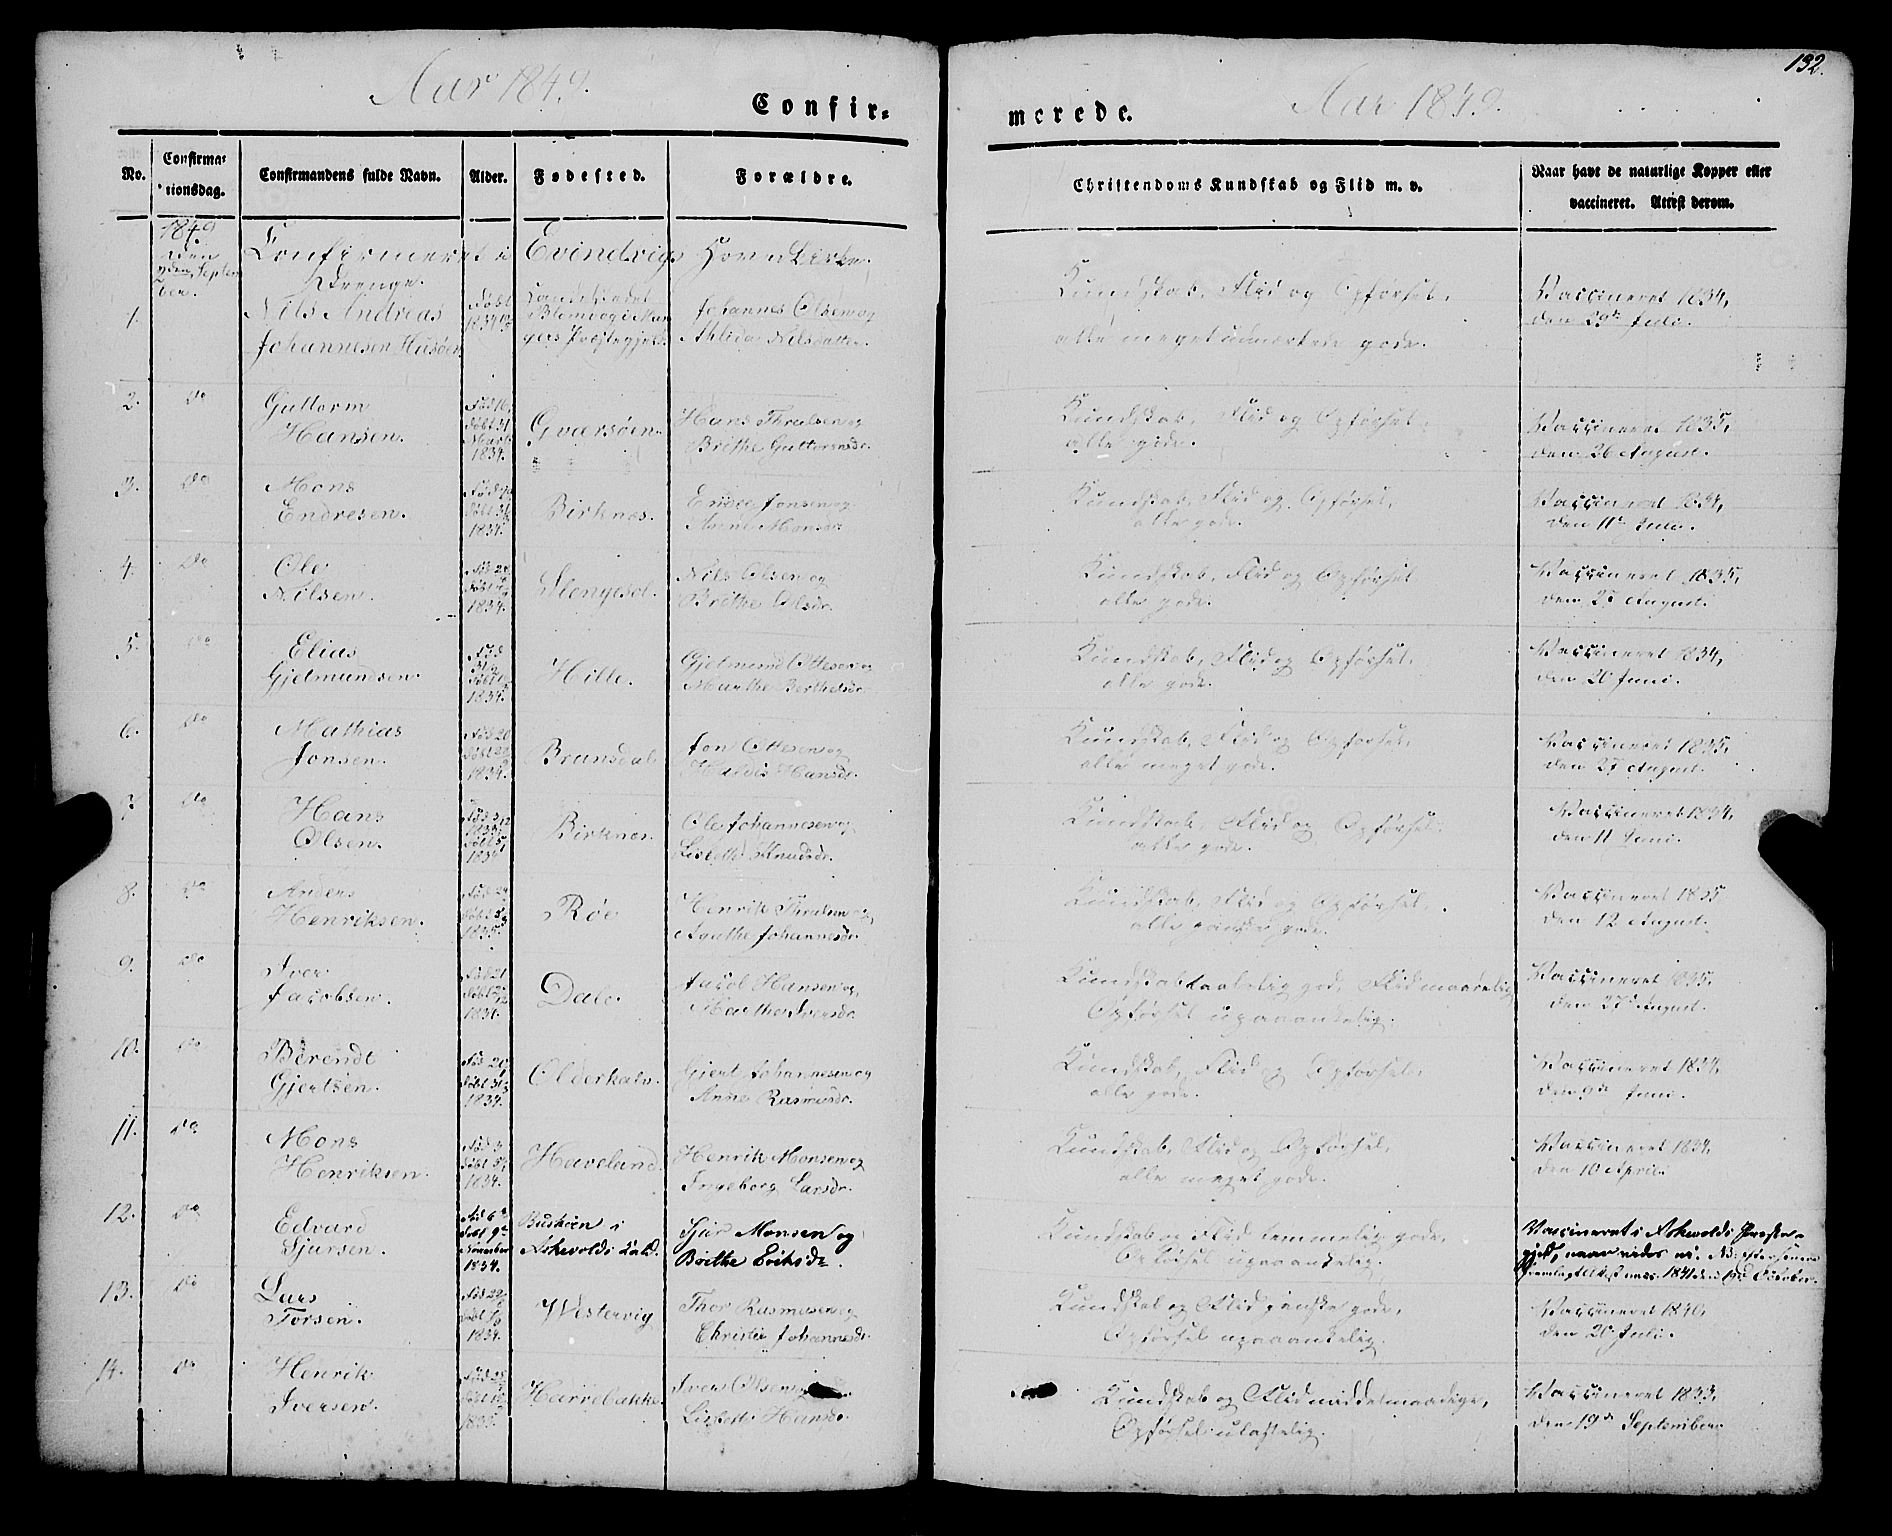 132.
Aar 1849.
Aar 1849.
Confir-
merede.
No.
Confirma-
tionsdag.
Confirmandens fulde Navn.
Alder.
Fødested.
Forældre.
Christendoms Kundskab og Flid m. v.
Naar havt de naturlige Kopper eller
vaccineret. Attest derom.
1849
den
Confirmeret i Evindvigs Hovd Kirke.
Drenge.
1.
Nils Andrias
Johannesen Husøen
Johannes Olsen og
Ahlida Nilsdatter.
Kundskab, Flid og Opførsel,
alle meget udmærkede gode.
Vaccineret 1834,
den 29de Juli.
2. do
Guttorm
Hansen.
1834.
Gværsøen.
Hans Thrulsen og
Brithe Guttormsdr.
Kundskab, Flid og Opførsel
alle gode.
Vaccineret 1835,
den 26 August.
3. do
Mons
Endresen.
1834.
Birknes.
Endre Jonsen og
Anne Monsdr.
Kundskab, Flid og Opførsel,
alle gode.
Vaccineret 1834,
den 11te Juli.
4. do
Ole
Nilsen.
1834.
Slengesol.
Nils Olsen og
Brithe Olsdr.
Kundskab, Flid og Opførsel
alle gode.
Vaccineret 1835,
den 27 August.
5. do
Elias
Gjetmundsen.
1834.
Hille.
Gjetmund Ottesen og
Marthe Berthelsdr.
Kundskab, Flid og Opførsel,
alle gode.
Vaccineret 1834,
den 20 Juni.
6. do
Mathias
Jonsen.
1834.
Brunsdal
Jon Ottesen og
Huldis Hansdr.
Kundskab, Flid og Opførsel,
alle meget gode.
Vaccineret 1835,
den 27 August.
7. do
Hans
Olsen.
1834
Birknes.
Ole Johannesen og
Lisbeth Knudsdr.
Kundskab, Flid og Opførsel.
alle gode.
Vaccineret 1834,
den 11 Juni.
8. do
Anders
Henriksen.
1835.
Røe
Henrik Thrulsen og
Agathe Johannesdr.
Kundskab, Flid og Opførsel,
alle ganske gode.
Vaccineret 1835
den 12 August.
9. do
Iver
Jacobsen.
1834.
Dale.
Jacob Hansen og
Marthe Iversdr.
Kundskab taalelig god, Flid maadelig
Opførsel upaaankelig.
Vaccineret 1835.
den 27de August.
10. do
Berendt
Gjertsen.
1834.
Olderkalv.
Gjert Johannesen og
Anne Rasmusdr.
Kundskab, Flid og Opførsel,
alle gode.
Vaccineret 1834,
den 9de Juni.
11. do
Mons
Henriksen.
1834.
Haveland.
Henrik Monsen og
Ingeborg Larsdr.
Kundskab, Flid og Opførsel,
alle meget gode.
Vaccineret 1834.
den 10 April.
12. do
Edvard
Sjursen.
Død 6te
Døbt 9de
November
1834.
Buskøen i
Askevolds Kald.
Sjur Monsen og
Brithe Eriksdr.
Kundskab og Flid temmelig gode,
Opførsel upaaankelig.
Vaccineret i Askevolds Præste-
13. do
Lars
Torsen.
1834.
Westervig
Thor Rasmusen og
Christie Johannesdr.
Kundskab og Flid ganske gode,
Opførsel upaaankelig.
Vaccineret 1840,
den 20 Juli.
14. do
Henrik
Iversen.
Harrebakke.
Iver Olsen og
Lisbeth Hansdr.
Kundskab og Flid middelmaadige,
Opførsel ulastelig.
Vaccineret 1833,
den 19de September